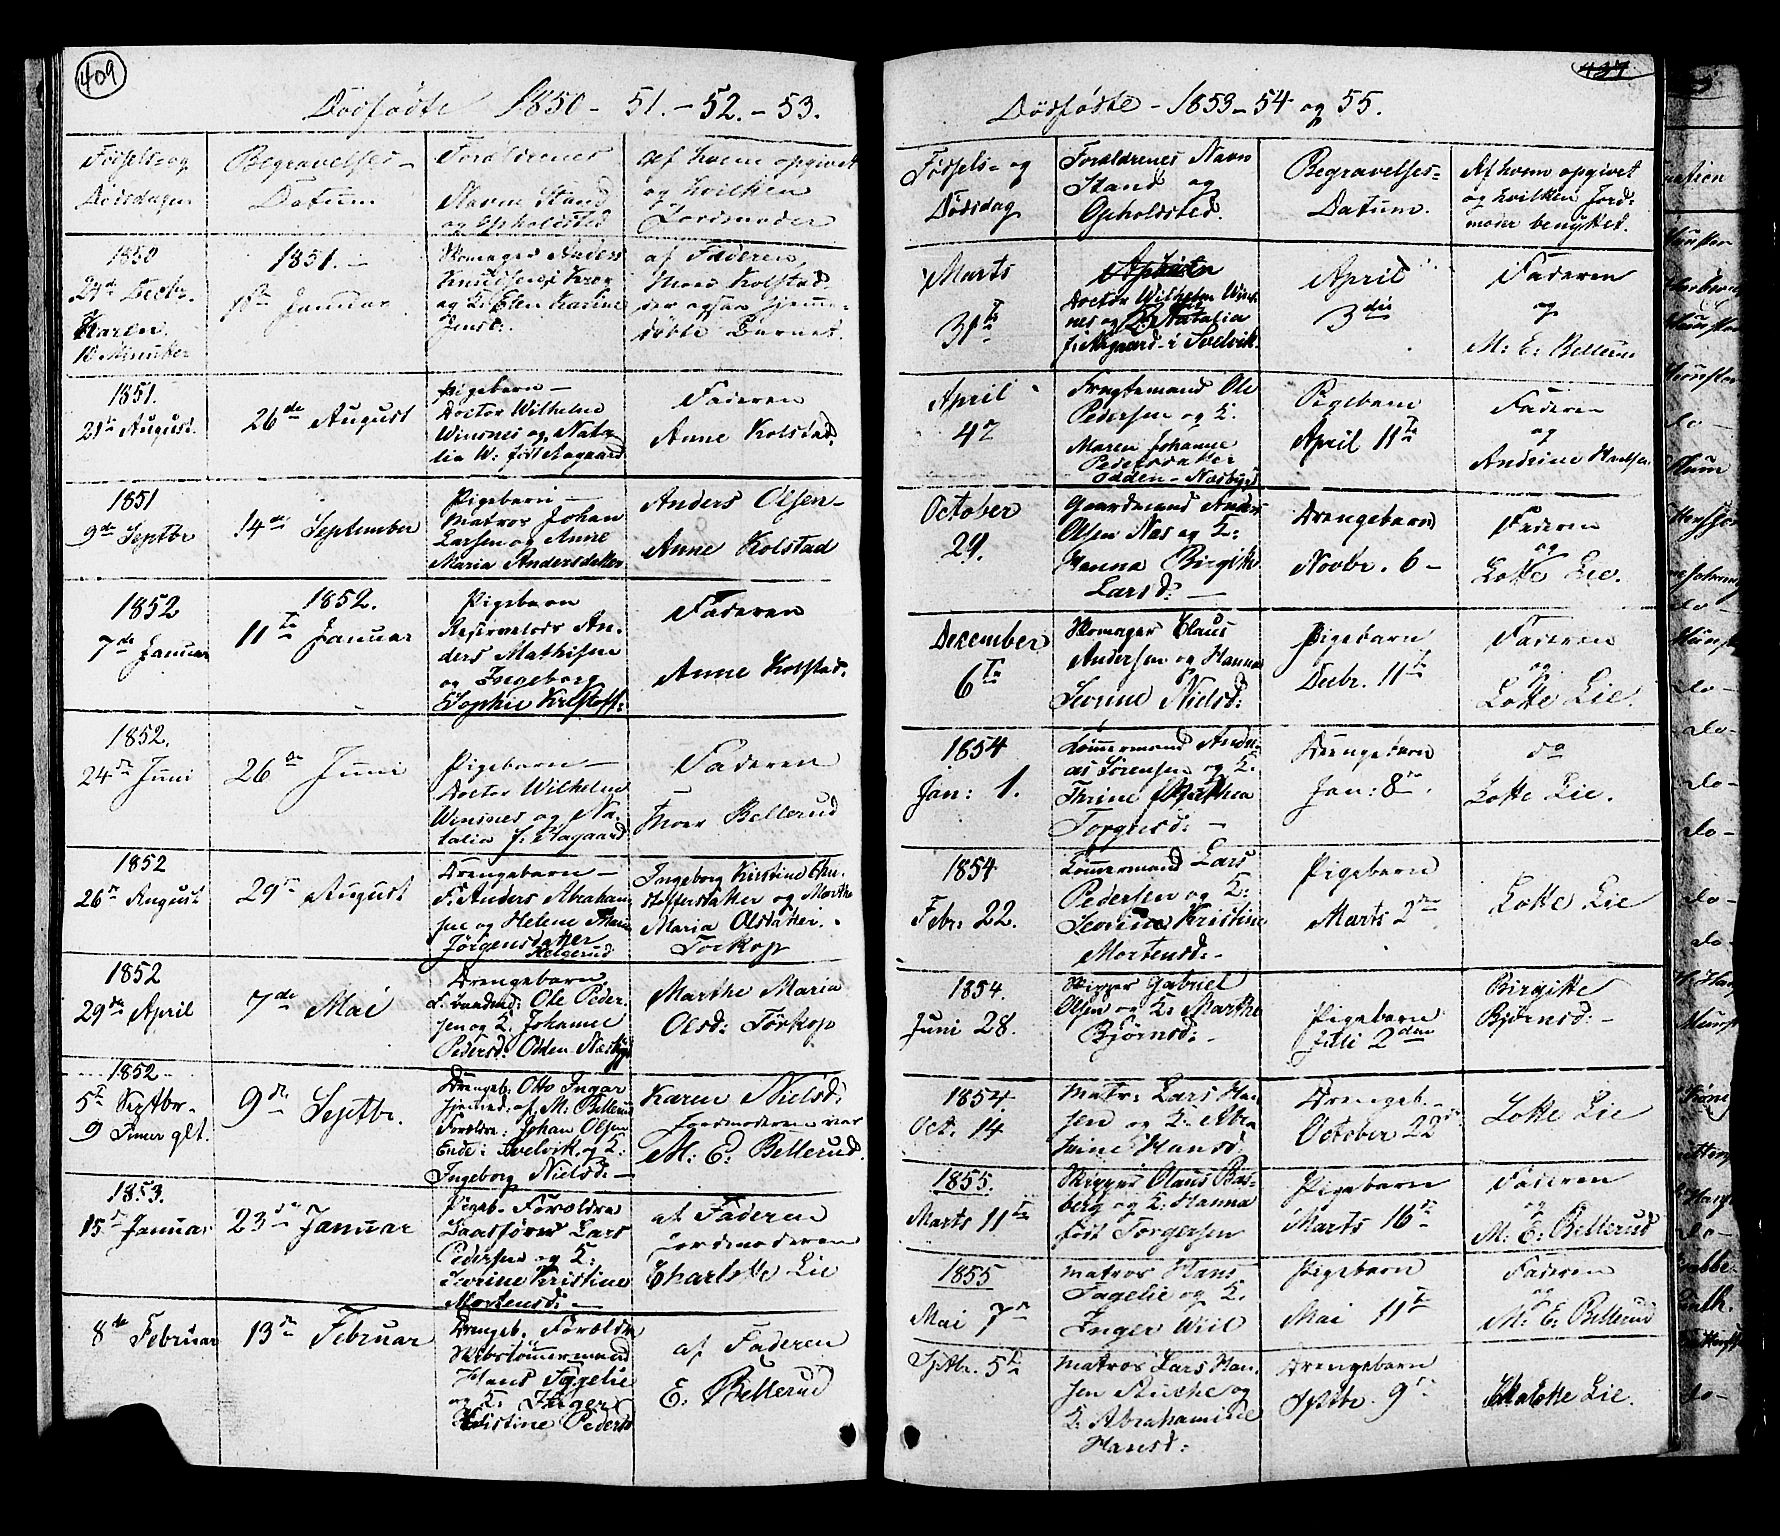 409
Dödfödte 1850 - 51. - 52. - 53.
Födsels- og
Dødsdagen
Begravelses-
Datum
Forældrenes
Navn Stand
og Opholdsted
Af hvem opgivet
og hvilken
Jordmoder
1850
Decbr.
Karen
10 Minutter
1851. -
Januar
Skomager Anders
Knudsen
og K: Elen Karine
Jensd:
af Faderen,
Moer Kolstad
der ogsaa hjemme-
döbte Barnet.
1851.
21de August.
26de August
Pigebarn -
Doctor Wilhelm
Winsnes og Nata-
lia W: född Aagaard
Faderen
Anne Kolstad.
1851
9de Septbr
14de September
Pigebarn -
Matros Johan
Larsen og Anne
Maria Andersdatter
Anders Olsen -
Anne Kolstad
1852
7de Januar
1852.
11te Januar
Pigebarn
Reservelods An-
ders Mathisen
og Ingeborg
Sophie Kristoff:
Faderen
Anne Kolstad.
1852.
24de Juni
26de Juni
Pigebarn -
Doctor Wilhelm
Winsnes og Na-
talia f. Aagaard
Faderen
Moer Bellerud
1852
26de August
29de August
Drengebarn -
F. Anders Abraham-
sen og Helene Marie
Jörgensdatter
Helgerud
Ingeborg Kirstine Chri-
stoffersdatter og Marthe
Maria Olsdatter.
Torkop
1852
29de April
7de Mai
Drengebarn,
Ole Peder-
sen og K. Johanne
Pedersd: Odden Næsbygd
Marthe Maria
Olsd: Törkop
1852
5te Septbr -
9 Timer glt.
9de Septbr.
Drengeb. Otto Ingar
hjemmed. af M: Bellerud
Forældre: Johan Olsen
Ende i Svelvik og K:
Ingeborg Nielsd: -
Karen Nielsd:
Jordmoderen var
M: E: Bellerud.
1853.
15de Januar
23de Januar
Pigeb. Forældre
Baadförer Lars
Pedersen og K:
Severine Kristine
Mortensd: -
af Faderen
Jordmoderen
Charlotte Lie
8de Februar
13de Februar
Drengeb. Forældre
Skibstömmermand
Hans Fagelie
og K. Inger
Kristine Peders
af Faderen
E: Bellerud
Dödfödte - 1853 - 54 og 55.
Födsels- og
Dödsdag
Forældrenes Navn
Stand og
Opholdsted.
Begravelses-
Datum.
Af hvem opgivet
og hvilken Jord-
moder benyttet.
Marts
31te
Doctor Wilhelm Wins-
nes og K: Natalia
f: Aagaard - i Svelvik.
April
3die
Faderen
og
M: E: Bellerud
April
4de
Fragtemand Ole
Pedersen og K:
Maren Johanne
Pedersdatter
Odden - Næsbygd
Pigebarn
April 11te
Faderen
og
Andrine
October
29.
Gaardmand Anders
Olsen Næs og K:
Hanna Birgitte
Larsd: -
Drengebarn
Novbr. 6 -
Faderen
og
Lotte Lie.
December
6te
Skomager Claus
Andersen og Hanna
Severine Nielsd:
Pigebarn
Decbr. 11te
Faderen
og
Lotte Lie.
1854
Jan: 1.
Tömmermand Andre-
as Sörensen og K.
Thrine Mathea
Torgersd: -
Drengebarn
Jan: 8de.
do
Lotte Lie.
1854
Febr. 22.
Tömmermand Lars
Pedersen og K:
Severine Kristine
Mortensd: -
Pigebarn
Marts 2den
Lotte Lie
1854.
Juni 28.
Skipper Gabriel
Olsen og K: Marthe
Björnsd: -
Pigebarn
Juli 2den
Birgitte
Björnsd: -
1854.
Oct. 14
Matr: Lars Han-
sen og K. Abra-
mine Hansd.
Drengeb.
October 22de
Lotte Lie
1855.
Marts 11te
Skipper Olaus Bas-
berg og K. Hanna
född Torgersen
Pigebarn
Marts 16de
Faderen
og
M: E: Bellerud
1855
Mai 7de
Matros Hans
Fagelie og K.
Inger Wiil
Pigebarn
Mai 11te
Faderen
og
M: E: Bellerud
Septbr. 5te
Matros Lars Han-
sen og
K: Abrahamine
Hansd:
Drengebarn
Septbr. 9de
Charlotte Lie.